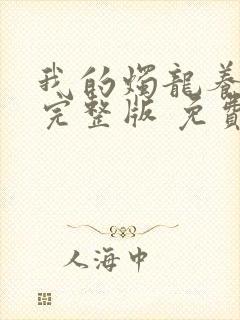 我的燭龍養
完整版 免費
人海中